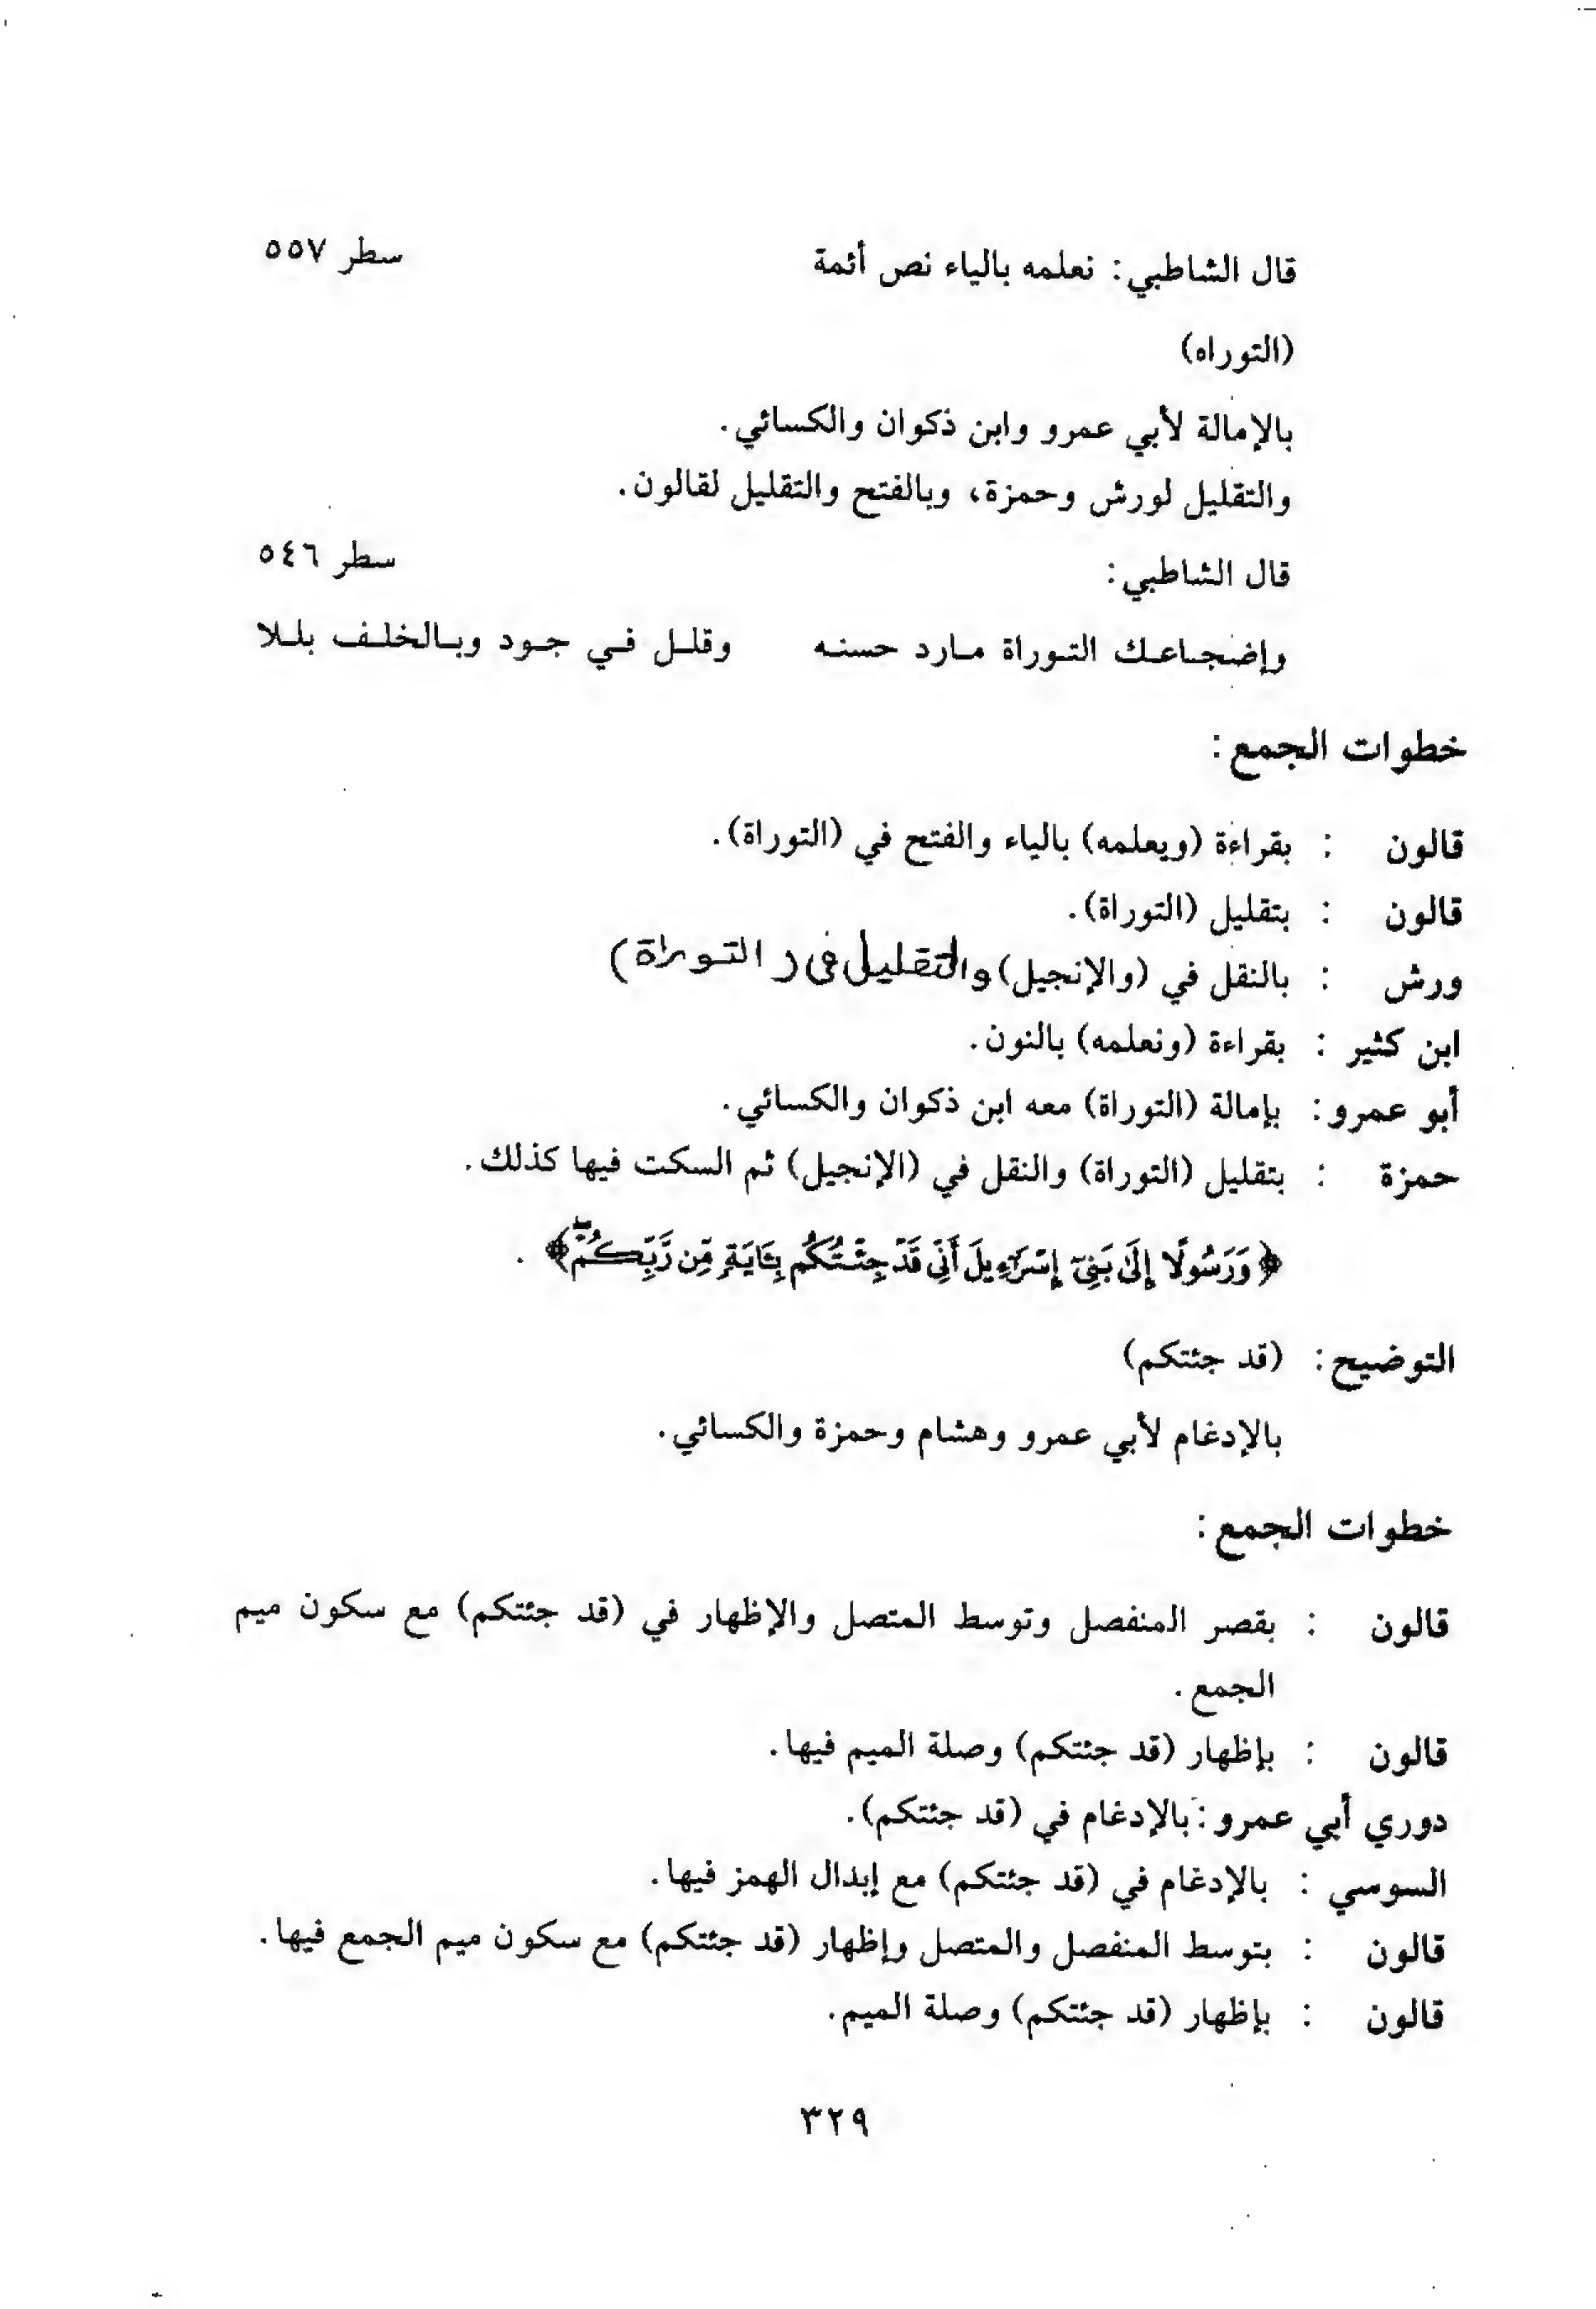 قال الشاطبي: نعلمه بالياء نص أئمة سطر ٥٥٧
(التوراه)
بالإمالة لأبي عمرو وابن ذكوان والكسائي.
والتقليل لورش وحمزة، وبالفتح والتقليل لقالون.
قال الشاطبي: سطر ٥٤٦
وإضجاعك التوراة مارد حسنه وقلل في جود وبالخلف بللا
خطوات الجمع:
قالون : بقراءة (ويعلمه) بالياء والفتح في (التوراة).
قالون : بتقليل (التوراة).
ورش : بالنقل في (والإنجيل) والتقليل في (التوراة)
ابن كثير : بقراءة (ونعلمه) بالنون.
أبو عمرو: بإمالة (التوراة) معه ابن ذكوان والكسائي.
حمزة : بتقليل (التوراة) والنقل في (الإنجيل) ثم السكت فيها كذلك.
﴿وَرَسُولًا إِلَىٰ بَنِىٓ إِسْرَٰٓءِيلَ أَنِّى قَدْ جِئْتُكُم بِـَٔايَةٍ مِّن رَّبِّكُمْ ۖ﴾.
التوضيح: (قد جئتكم)
بالإدغام لأبي عمرو وهشام وحمزة والكسائي.
خطوات الجمع:
قالون : بقصر المنفصل وتوسط المتصل والإظهار في (قد جئتكم) مع سكون ميم
الجمع.
قالون : بإظهار (قد جئتكم) وصلة الميم فيها.
دوري أبي عمرو: بالإدغام في (قد جئتكم).
السوسي : بالإدغام في (قد جئتكم) مع إبدال الهمز فيها.
قالون : بتوسط المنفصل والمتصل وإظهار (قد جئتكم) مع سكون ميم الجمع فيها.
قالون : بإظهار (قد جئتكم) وصلة الميم.
٣٢٩